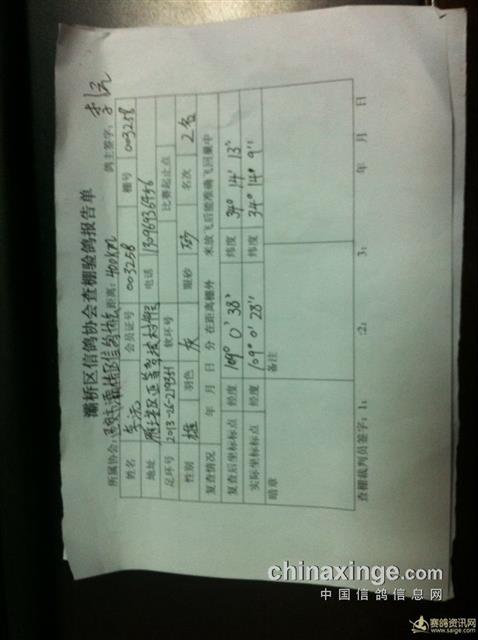 灞桥区信鸽协会查棚验鸽报告单
所属协会: 灞桥区信鸽协会 距离: 400km 鸽主签字:
姓名 李 会员证号 003258 棚号 003258
地址 雁塔区 电话
足环号 2013-26-219341 软环号 比赛起止点
性别 雄 羽色 灰 眼砂 砂 名次 2名
复查情况 年 月 日 分 在距离棚外 米放飞后能准确飞回巢中
复查后坐标标点 经度 109° 0′ 38″ 纬度 34° 14′ 13″
实际坐标标点 经度 109° 0′ 28″ 纬度 34° 14° 9″
暗章 备注
查棚裁判员签字: 1: :2: 3: 年 月 日
chinaxinge.com
中国信鸽信息网
赛鸽资讯网
www.saige.com